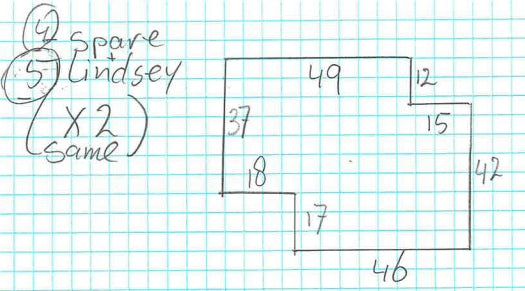 4 spare
5 Lindsey
(x2
same)
49
12
15
37
18
42
17
46